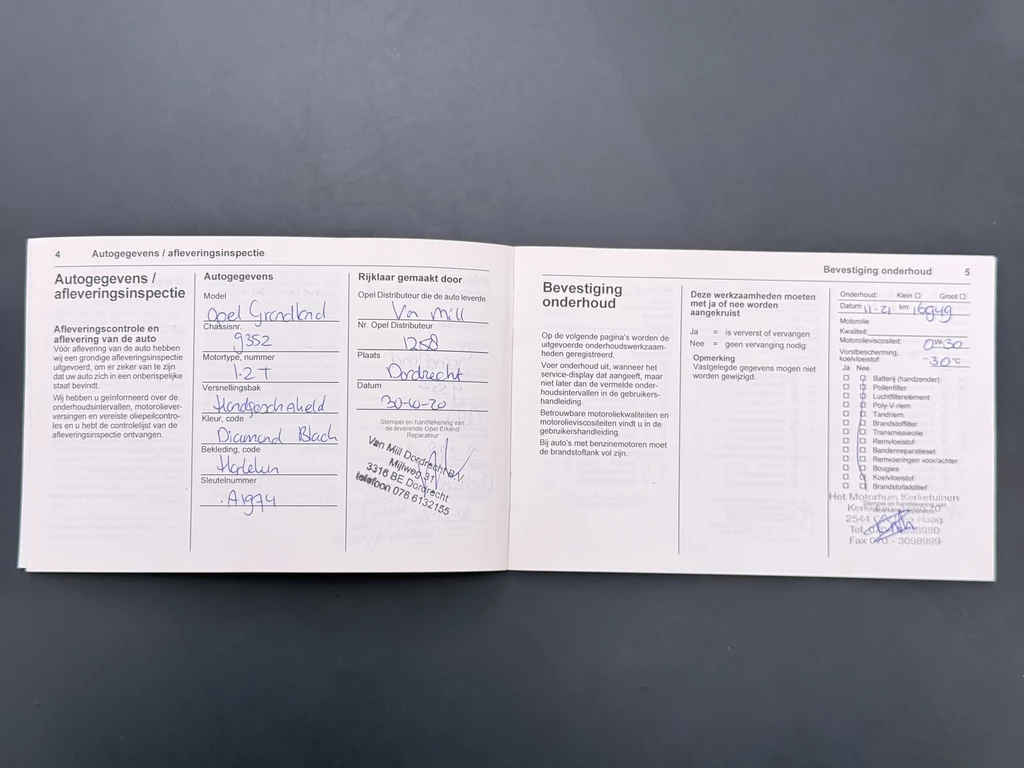 4 Autogegevens / afleveringsinspectie
Autogegevens /
afleveringsinspectie
Afleveringscontrole en
aflevering van de auto
Vóór aflevering van de auto hebben
wij een grondige afleveringsinspectie
uitgevoerd, om er zeker van te zijn
dat uw auto zich in een onberispelijke
staat bevindt.
Wij hebben u geïnformeerd over de
onderhoudsintervallen, motoroliever-
versingen en vereiste oliepeilcontro-
les en u hebt de controlelijst van de
afleveringsinspectie ontvangen.
Autogegevens
Model
Opel Grandland
Chassisnr.
9352
Motortype, nummer
1.2T
Versnellingsbak
Handgeschakeld
Kleur, code
Diamond Black
Bekleding, code
Sleutelnummer
A1974
Rijklaar gemaakt door
Opel Distributeur die de auto leverde
Van Mill
Nr. Opel Distributeur
1258
Plaats
Dordrecht
Datum
30-10-20
Stempel en handtekening van
de leverende Opel Erkend
Reparateur
Van Mill Dordrecht B.V.
Mijlweg 31
3316 BE Dordrecht
telefoon 078 6132155
Bevestiging onderhoud 5
Bevestiging
onderhoud
Op de volgende pagina's worden de
uitgevoerde onderhoudswerkzaam-
heden geregistreerd.
Voer onderhoud uit, wanneer het
service-display dat aangeeft, maar
niet later dan de vermelde onder-
houdsintervallen in de gebruikers-
handleiding.
Betrouwbare motoroliekwaliteiten en
motorolieviscositeiten vindt u in de
gebruikershandleiding.
Bij auto's met benzinemotoren moet
de brandstoftank vol zijn.
Deze werkzaamheden moeten
met ja of nee worden
aangekruist
Ja = is ververst of vervangen
Nee = geen vervanging nodig
Opmerking
Vastgelegde gegevens mogen niet
worden gewijzigd.
Onderhoud: Klein Groot
Datum 11-21 km 16949
Motorolie
Kwaliteit:
Motorolieviscositeit: 0W30
Vorstbescherming,
koelvloeistof -30°C
Ja Nee
Batterij (handzender)
Pollenfilter
Luchtfilterelement
Poly-V-riem
Tandriem
Brandstoffilter
Transmissieolie
Remvloeistof
Bandenreparatieset
Remvoeringen voor/achter
Bougies
Koelvloeistof
Brandstofadditief
Het Motorhuis Kerketuinen
2544 Haag
Fax 070 - 3098999